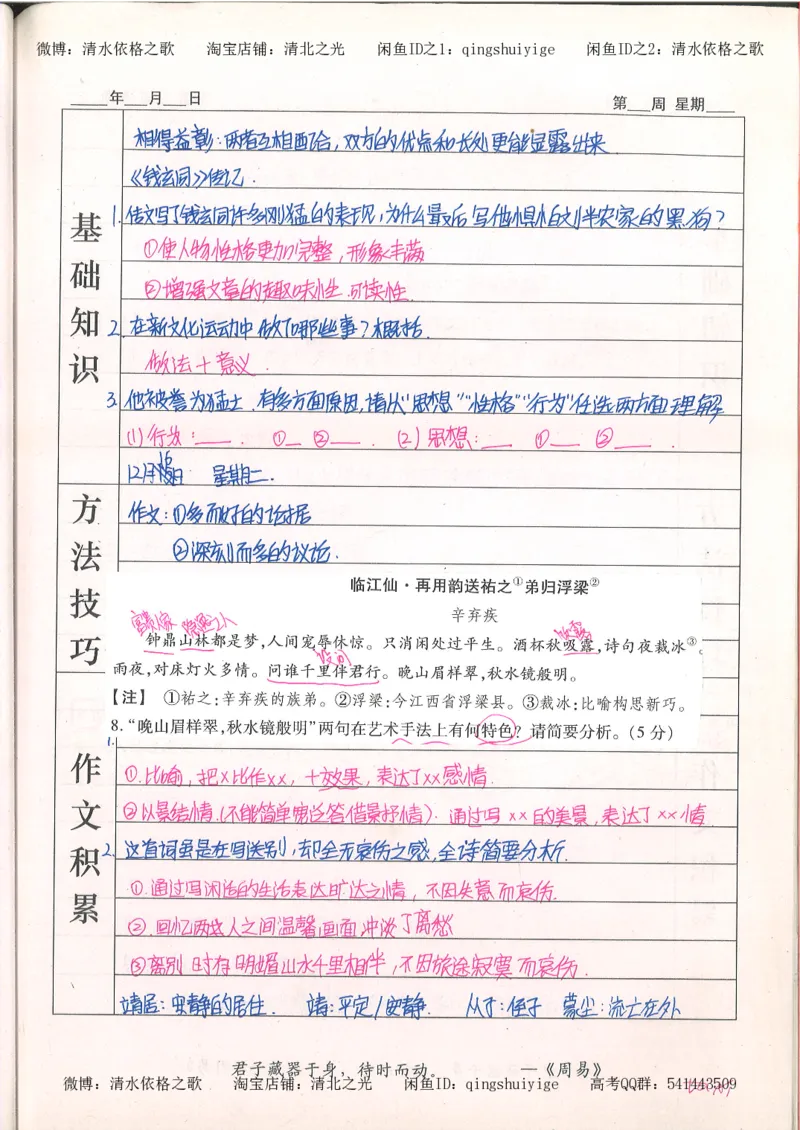 微博：清水依格之歌 淘宝店铺：清北之光 闲鱼ID之1：qingshuiyige 闲鱼ID之2：清水依格之歌
年 月 日 第 周 星期
基础知识
相得益彰：两者互相配合，双方的优点和长处更能显露出来
《钱玄同》传记．
1. 传文写了钱玄同许多刚猛的表现，为什么最后写他惧怕刘半农家的黑狗？
①使人物性格更加完整，形象丰满
②增强文章的趣味性．可读性．
2. 在新文化运动中做了哪些事？概括．
做法＋意义．
3. 他被誉为猛士．有多方面原因，请从"思想""性格""行为"任选两方面理解
(1)行为：___． ①__②___． (2)思想：___ ①___ ②___．
12月16日 星期二．
方法技巧
作文：①多而好的论据
②深刻而多的议论．
临江仙·再用韵送祐之①弟归浮梁②
辛弃疾
富贵人家 隐逸之人 饮露
钟鼎山林都是梦，人间宠辱休惊。只消闲处过平生。酒杯秋吸露，诗句夜裁冰③。
设问
雨夜，对床灯火多情。问谁千里伴君行。晚山眉样翠，秋水镜般明。
【注】 ①祐之：辛弃疾的族弟。②浮梁：今江西省浮梁县。③裁冰：比喻构思新巧。
8.“晚山眉样翠，秋水镜般明”两句在艺术手法上有何特色？请简要分析。（5分）
作文积累
1.
①．比喻，把x比作xx，＋效果，表达了xx感情．
②以景结情．(不能简单笼统答借景抒情)．通过写xx的美景，表达了xx情．
2. 这首词虽是在写送别，却全无哀伤之感，全诗简要分析．
①．通过写闲适的生活表达旷达之情，不因失意而哀伤．
②．回忆两人之间温馨画面，冲淡了离愁
③离别时有明媚山水千里相伴，不因旅途寂寞而哀伤．
靖居：安静的居住． 靖：平定/安静． 从子：侄子 蒙尘：流亡在外
君子藏器于身，待时而动。 —《周易》
微博：清水依格之歌 淘宝店铺：清北之光 闲鱼ID：qingshuiyige 高考QQ群：541443509